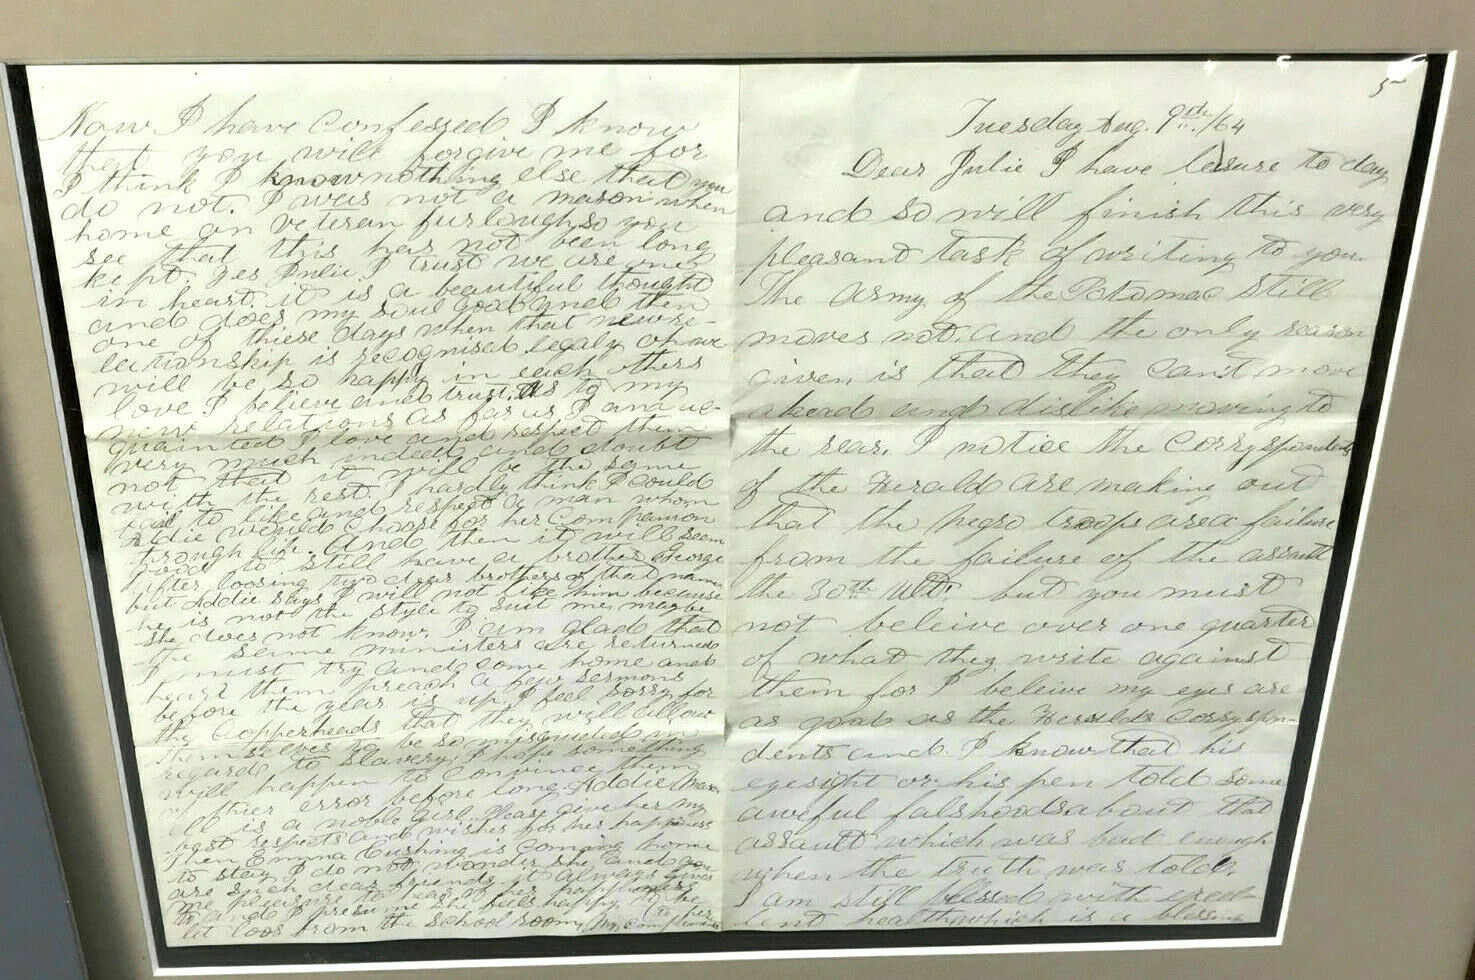 Now I have confessed I know
that you will forgive me for
I think I know nothing else that you
do not. I was not a mason when
home on veteran furlough, so you
see that this has not been long
kept. yes Julie, I trust we are one
in heart. it is a beautiful thought
and does my soul good and then
one of these days when that new re-
lectionship is recognised legaly oh we
will be so happy in each others
love I believe and trust. As to my
new relations as far as I and ac-
quainted I love and respect them
very much indeed and doubt
not that it will be the same
with the rest. I hardly think I could
fail to like and respect a man whom
Addie would choose for her companion
trough life. And then it will seem
good to still have a brother George
after loosing two dear brothers of that name
but Addie says I will not like him because
he is not the style to suit me maybe
she does not know. I am glad that
the same ministers are returned
I must try and come home and
hear them preach a few sermons
before the year is up. I feel sorry for
the Copperheads that they will allow
themselves to be so misguided in
regards to slavery, I hope something
will happen to convince them
of thier error before long. Addie
is a noble girl. Please give her my
best respects and wishes for her happiness
then Emma Cushing is coming home
to stay I do not wonder she and you
are such dear friends. it always gives
me pleasure to hear of her happiness
and I presume she feels happy to be
let loos from the school room, My compliments
(to her
5
Tuesday Aug. 9th /64
Dear Julie I have leisure to day
and so will finish this very
pleasant task of writing to you.
The Army of the Potomac still
moves not. and the only reason
given is that they can't move
ahead and dislike moving to
the rear. I notice the Corryspondents
of the Herald are making out
that the negro troops are a failure
from the failure of the assault
the 30th Ult. but you must
not beleive over one quarter
of what they write against
them for I beleive my eyes are
as good as the Heralds Corryspon-
dents and I know that his
eyesight or his pen told some
aweful falshoods about that
assault which was bad enough
when the truth was told.
I am still blessed with excel-
lent health which is a blessing